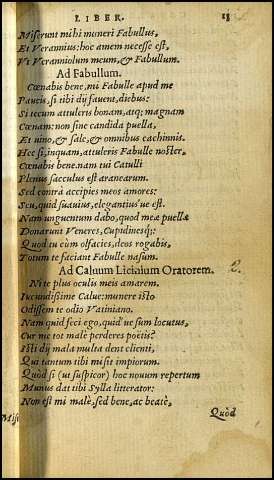 LIBER. 18
Miserunt mihi muneri Fabullus,
Et Verannius: hoc amem necesse est,
Vt Veranniolum meum, & Fabullum.
Ad Fabullum.
Cœnabis bene, mi Fabulle apud me
Paucis, si tibi dij fauent, diebus:
Si tecum attuleris bonam, atq; magnam
Cœnam: non sine candida puella,
Et uino, & sale, & omnibus cachinnis.
Hec si, inquam, attuleris Fabulle noster,
Cœnabis bene. nam tui Catulli
Plenus sacculus est aranearum.
Sed contrà accipies meos amores:
Seu, quid suauius, elegantius´ue est.
Nam unguentum dabo, quod meæ puellæ
Donarunt Veneres, Cupidinesq́;:
Quod tu cum olfacies, deos rogabis,
Totum te faciant Fabulle nasum.
Ad Caluum Licinium Oratorem.
Ni te plus oculis meis amarem,
Iucundißime Calue: munere isto
Odissem te odio Vatiniano.
Nam quid feci ego, quid´ue sum locutus,
Cur me tot malè perderes poëtis?
Isti dij mala multa dent clienti,
Qui tantum tibi misit impiorum.
Quòd si (ut suspicor) hoc nouum repertum
Munus dat tibi Sylla litterator:
Non est mi malè, sed bene, ac beatè,
Quòd